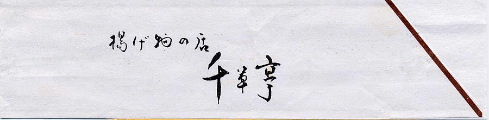 揚げ物の店
千草亭